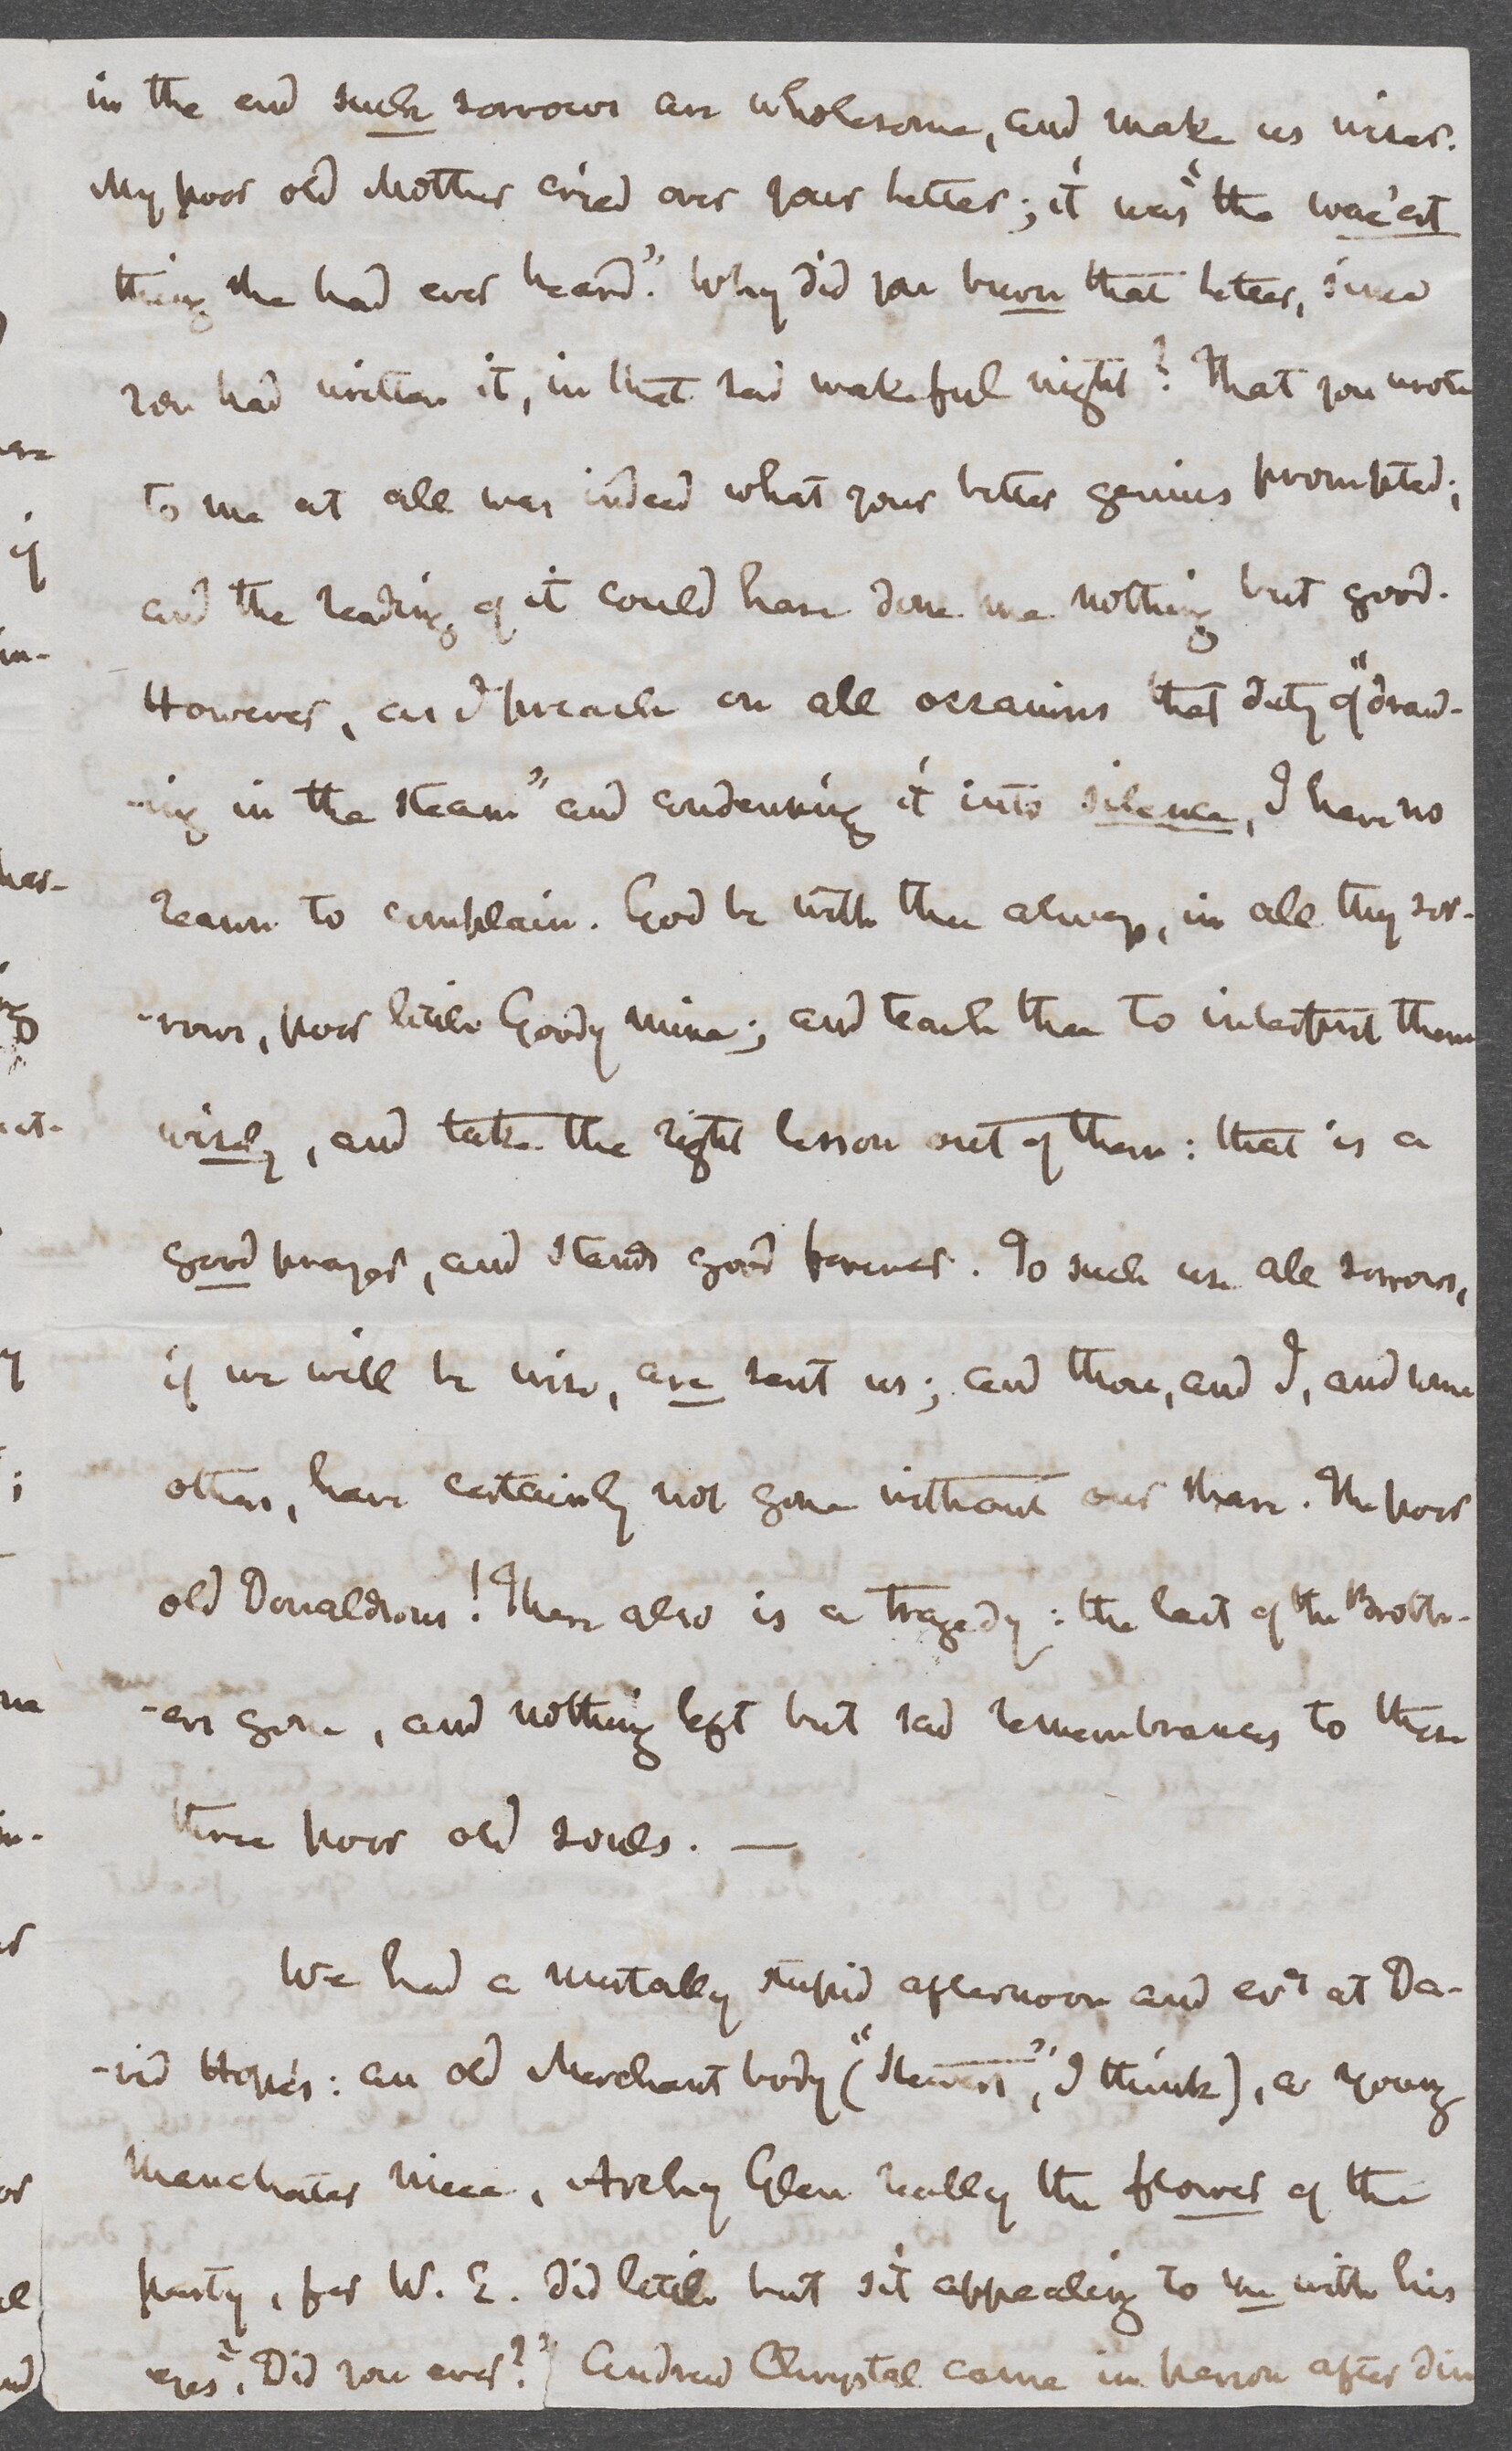 in the end such sorrows are wholesome, and make us wiser.
My poor old Mother cried over your letter; it was "the wae'est
thing she had ever heard." Why did you burn that letter, since
you had written it, in that sad wakeful night? That you wrote
to me at all was indeed what your better genius prompted;
and the reading of it could have done me nothing but good.
However, as I preach on all occasions that duty of "draw-
-ing in the steam" and condensing it into silence, I have no
reason to complain. God be with thee always, in all thy sor-
-rows, poor little Goody mine; and teach thee to interpret them
wisely, and take the right lesson out of them: that is a
good prayer, and stands good forever. To such use all sorrows,
if we will be wise, are sent us; and thou, and I, and some
others, have certainly not gone without our share. The poor
old Donaldsons! There also is a tragedy: the last of the Broth-
-ers gone, and nothing left but sad remembrances to these
three poor old souls. —
We had a mortally stupid afternoon and evg at Da-
-vid Hope's: an old Merchant body ("Stewart", I think), a young
Manchester niece, Archy Glen really the flower of the
party, for W. E. did little but sit appealing to me with his
eyes, "Did you ever?" Andrew Chrystal came in person after din
ere
if
in-
her-
at-
y
;
ne
in-
or
el
nd